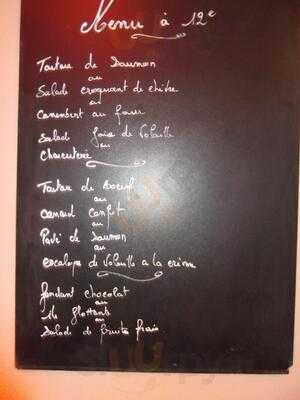 Menu à 12€
Tartare de Saumon
ou
Salade croquant de chèvre
ou
Camembert au four
ou
Salade foie de Volaille
ou
Charcuterie
Tartare de boeuf
ou
Canard Confit
ou
Pavé de Saumon
ou
escalope de Volaille a la crème
fondant chocolat
ou
île flottante
ou
Salade de fruits frais